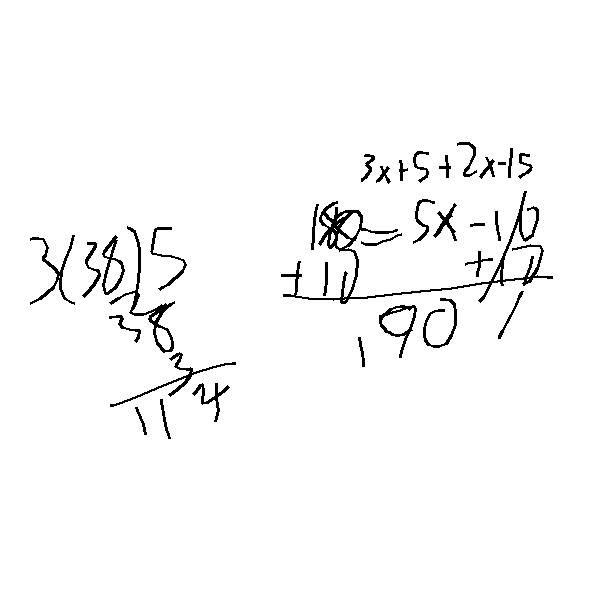 3x+5+2x-15
180=5x-10
+10 +10
190
3(38)5
38
3
114